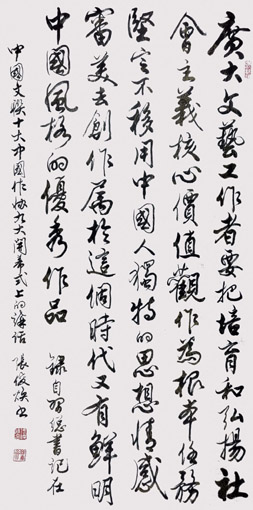 廣大文藝工作者要把培育和弘揚社
會主義核心價值觀作為根本任務
堅定不移用中國人獨特的思想情感
審美去創作屬於這個時代又有鮮明
中國風格的優秀作品 錄自習總書記在
中國文聯十大中國作協九大開幕式上的講話 張